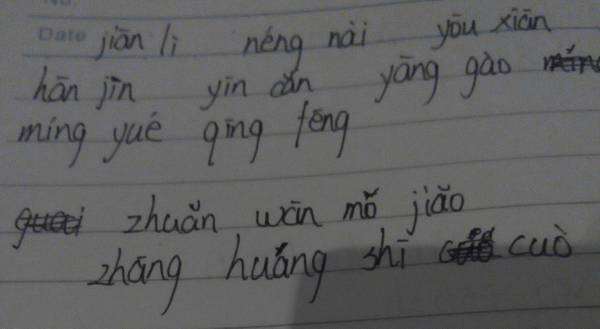 Date jiān lì néng nài yōu xiān
hān jīn yīn cǎn yāng gào
míng yué qīng fēng
zhuǎn wān mǒ jiǎo
zhāng huǎng shī cuò